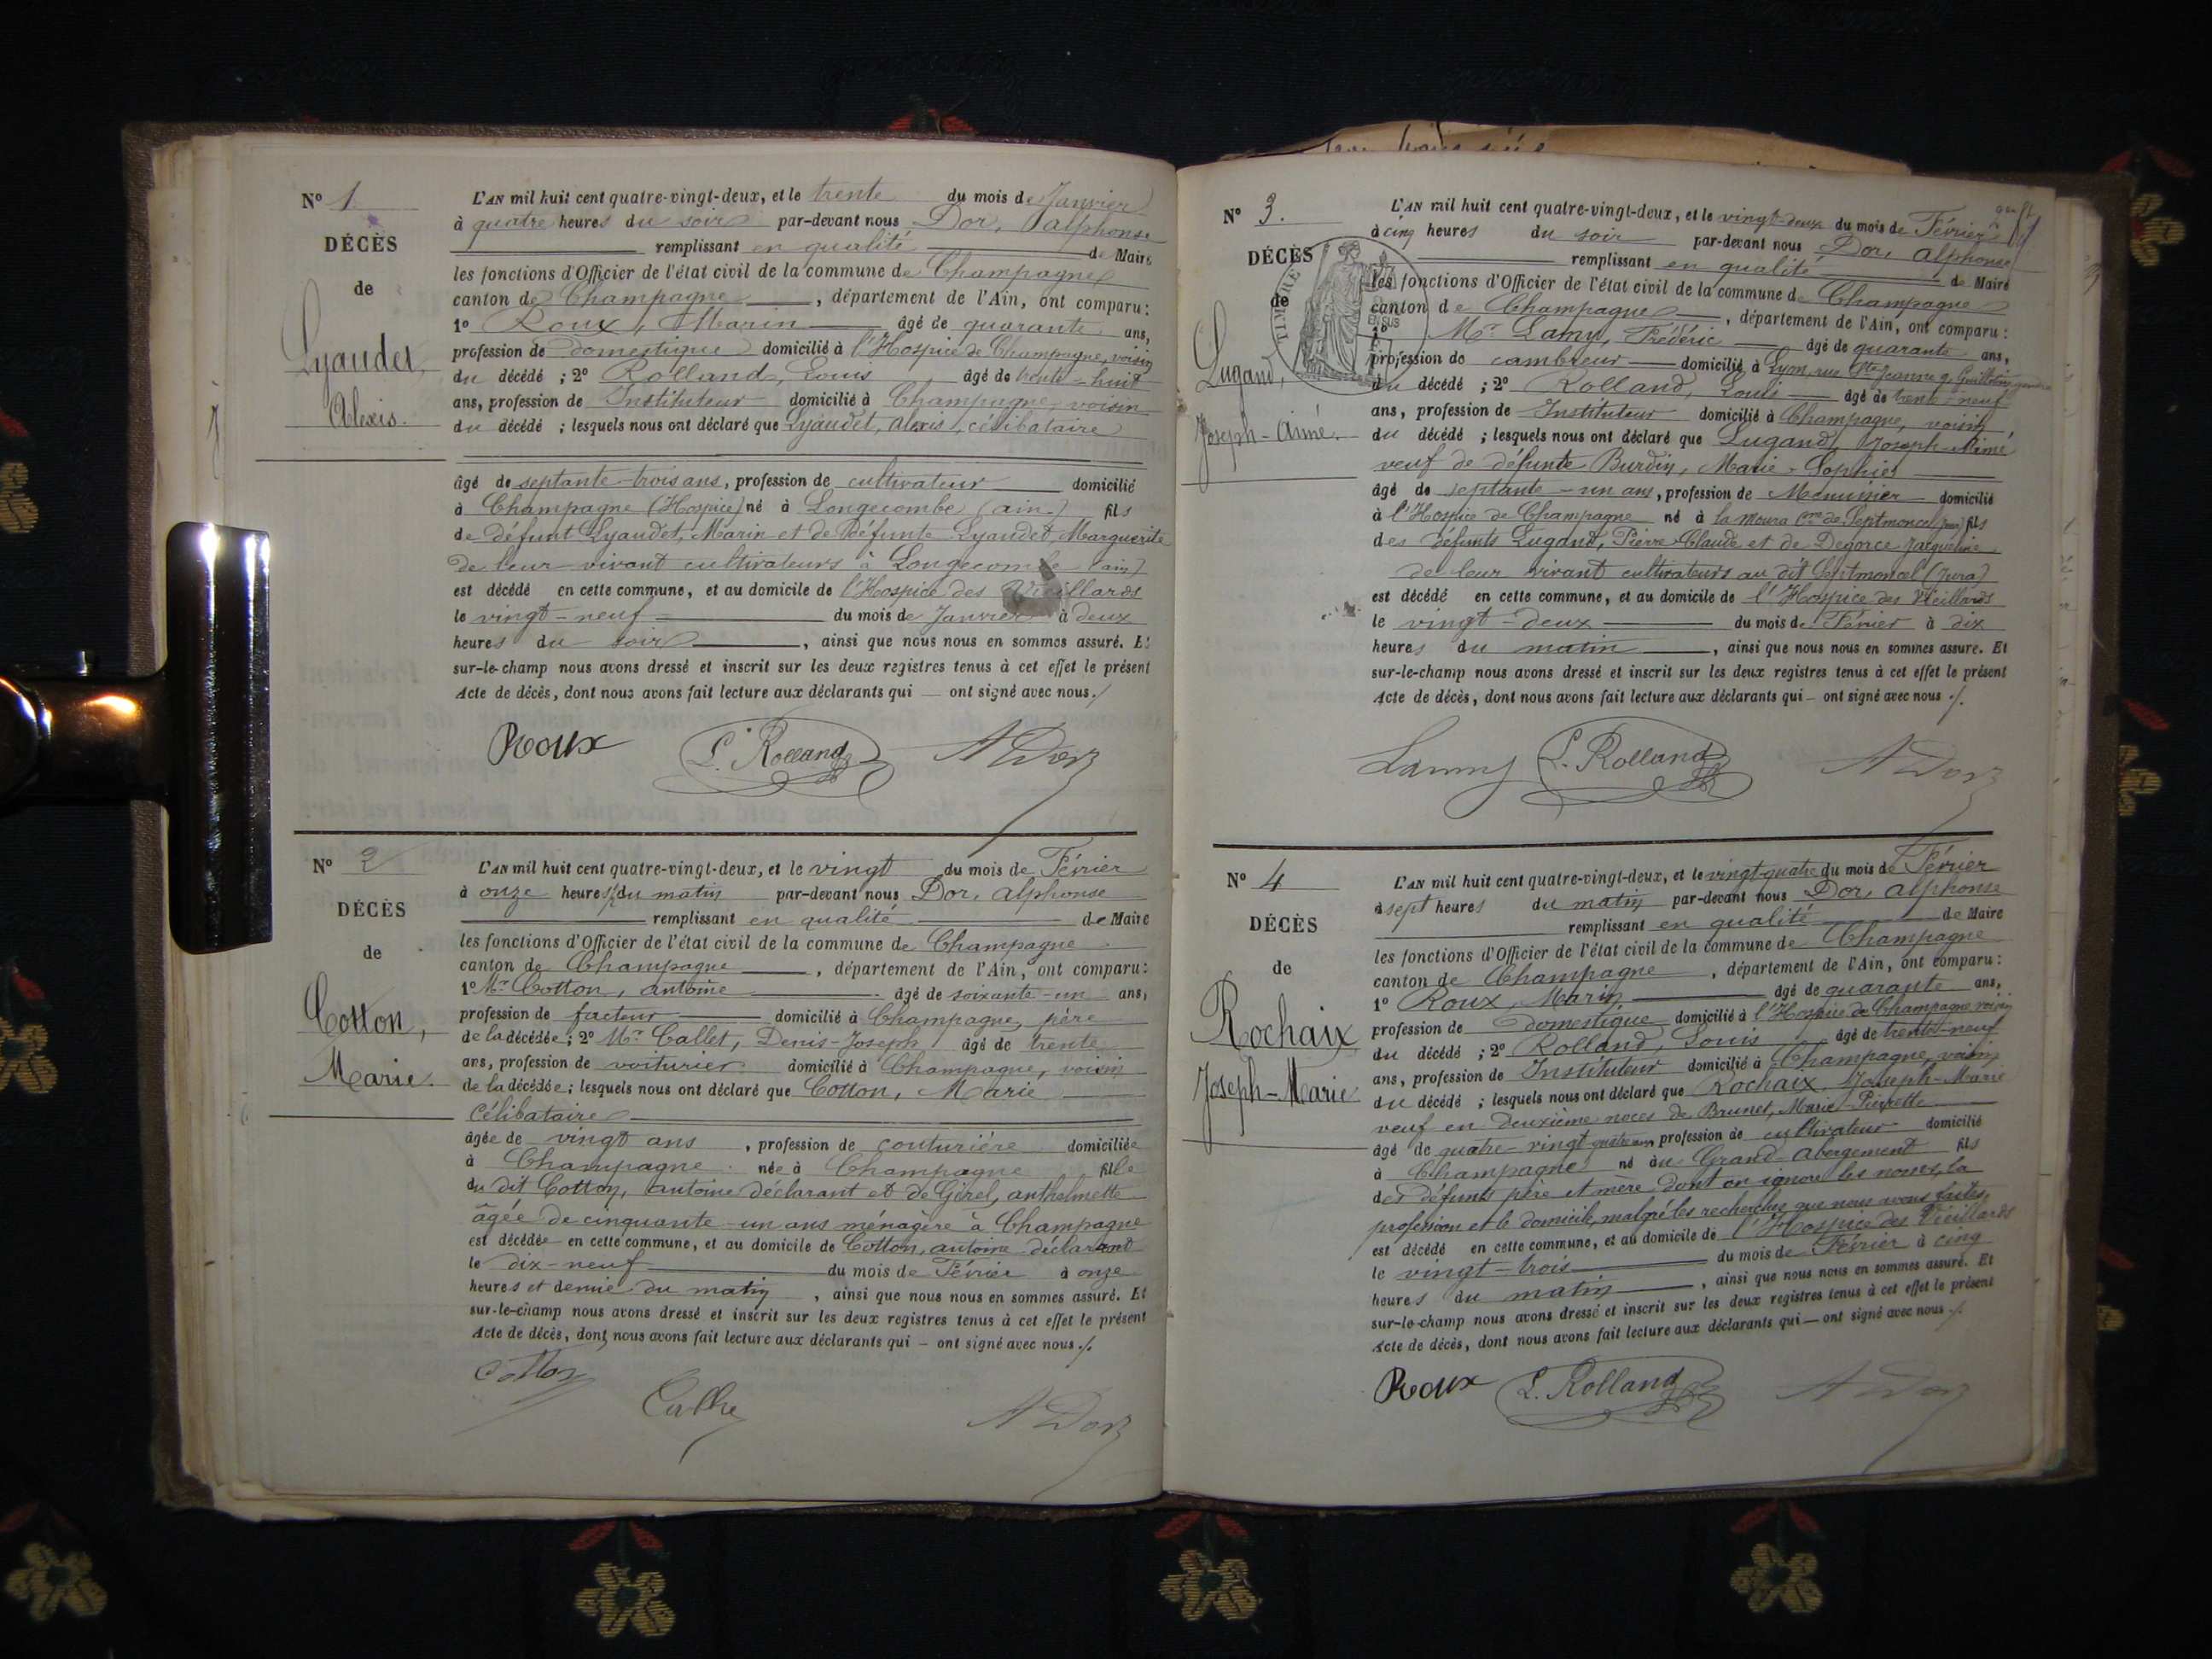 N° 1
DÉCÈS
de
Lyaudet,
Alexis.
L'AN mil huit cent quatre-vingt-deux, et le trente du mois de Janvier
à quatre heures du soir par-devant nous Dor, Alphonse
remplissant en qualité de Maire
les fonctions d'Officier de l'état civil de la commune de Champagne
canton de Champagne, département de l'Ain, ont comparu:
1° Roux, Marin âgé de quarante ans,
profession de domestique domicilié à l'Hospice de Champagne, voisin
du décédé ; 2° Rolland, Louis âgé de trente-huit
ans, profession de Instituteur domicilié à Champagne, voisin
du décédé ; lesquels nous ont déclaré que Lyaudet, Alexis, célibataire
âgé de septante-trois ans, profession de cultivateur domicilié
à Champagne (Hospice) né à Longecombe (ain) fils
de défunt Lyaudet, Marin et de Défunte Lyaudet, Marguerite
de leur vivant cultivateurs à Longecombe (ain)
est décédé en cette commune, et au domicile de l'Hospice des Vieillards
le vingt-neuf du mois de Janvier à deux
heures du soir, ainsi que nous nous en sommes assuré. Et
sur-le-champ nous avons dressé et inscrit sur les deux registres tenus à cet effet le présent
Acte de décès, dont nous avons fait lecture aux déclarants qui — ont signé avec nous ./.
Roux L. Rolland A Dor
N° 2
DÉCÈS
de
Cotton,
Marie.
L'AN mil huit cent quatre-vingt-deux, et le vingt du mois de Février
à onze heures du matin par-devant nous Dor, Alphonse
remplissant en qualité de Maire
les fonctions d'Officier de l'état civil de la commune de Champagne
canton de Champagne, département de l'Ain, ont comparu:
1° Mr Cotton, antoine âgé de soixante-un ans,
profession de facteur domicilié à Champagne, père
de la décédée ; 2° Mr Callet, Denis-Joseph âgé de trente
ans, profession de voiturier domicilié à Champagne, voisin
de la décédée ; lesquels nous ont déclaré que Cotton, Marie
Célibataire
âgée de vingt ans, profession de couturière domiciliée
à Champagne née à Champagne fille
du dit Cotton, antoine déclarant et de Girel, anthelmette
âgée de cinquante-un ans ménagère à Champagne
est décédée en cette commune, et au domicile de Cotton, antoine déclarant
le dix-neuf du mois de Février à onze
heures et demie du matin, ainsi que nous nous en sommes assuré. Et
sur-le-champ nous avons dressé et inscrit sur les deux registres tenus à cet effet le présent
Acte de décès, dont nous avons fait lecture aux déclarants qui — ont signé avec nous ./.
Cotton
A Dor
N° 3.
DÉCÈS
de
Lugand,
Joseph-Aimé.
TIMBRE
EN SUS
L'AN mil huit cent quatre-vingt-deux, et le vingt-deux du mois de Février
à cinq heures du soir par-devant nous Dor, Alphonse
remplissant en qualité de Maire
les fonctions d'Officier de l'état civil de la commune de Champagne
canton de Champagne, département de l'Ain, ont comparu:
1° Mr Lamy, Frédéric âgé de quarante ans,
profession de cambreur domicilié à Lyon, rue Ste Jeanne 9, Guillotière, gendre
du décédé ; 2° Rolland, Louis âgé de trente-neuf
ans, profession de Instituteur domicilié à Champagne, voisin
du décédé ; lesquels nous ont déclaré que Lugand, Joseph-Aimé
veuf de défunte Burdin, Marie-Sophie
âgé de septante-un ans, profession de Menuisier domicilié
à l'Hospice de Champagne né à la Moura Cne de Septmoncel (Jura) fils
des défunts Lugand, Pierre-Claude et de Degorce Jacqueline
de leur vivant cultivateurs au dit Septmoncel (Jura)
est décédé en cette commune, et au domicile de l'Hospice des Vieillards
le vingt-deux du mois de Février à dix
heures du matin, ainsi que nous nous en sommes assuré. Et
sur-le-champ nous avons dressé et inscrit sur les deux registres tenus à cet effet le présent
Acte de décès, dont nous avons fait lecture aux déclarants qui — ont signé avec nous ./.
Lamy L. Rolland A Dor
N° 4
DÉCÈS
de
Rochaix
Joseph-Marie
L'AN mil huit cent quatre-vingt-deux, et le vingt-quatre du mois de Février
à sept heures du matin par-devant nous Dor, Alphonse
remplissant en qualité de Maire
les fonctions d'Officier de l'état civil de la commune de Champagne
canton de Champagne, département de l'Ain, ont comparu:
1° Roux, Marin âgé de quarante ans,
profession de domestique domicilié à l'Hospice de Champagne, voisin
du décédé ; 2° Rolland, Louis âgé de trente-neuf
ans, profession de Instituteur domicilié à Champagne, voisin
du décédé ; lesquels nous ont déclaré que Rochaix, Joseph-Marie
veuf en deuxième noces de Brunet, Marie-Pierrette
âgé de quatre-vingt-quatre ans, profession de cultivateur domicilié
à Champagne né au Grand-Abergement fils
des défunts père et mère dont on ignore les noms, la
profession et le domicile, malgré les recherches que nous avons faites,
est décédé en cette commune, et au domicile de l'Hospice des Vieillards
le vingt-trois du mois de Février à cinq
heures du matin, ainsi que nous nous en sommes assuré. Et
sur-le-champ nous avons dressé et inscrit sur les deux registres tenus à cet effet le présent
Acte de décès, dont nous avons fait lecture aux déclarants qui — ont signé avec nous ./.
Roux L. Rolland A Dor